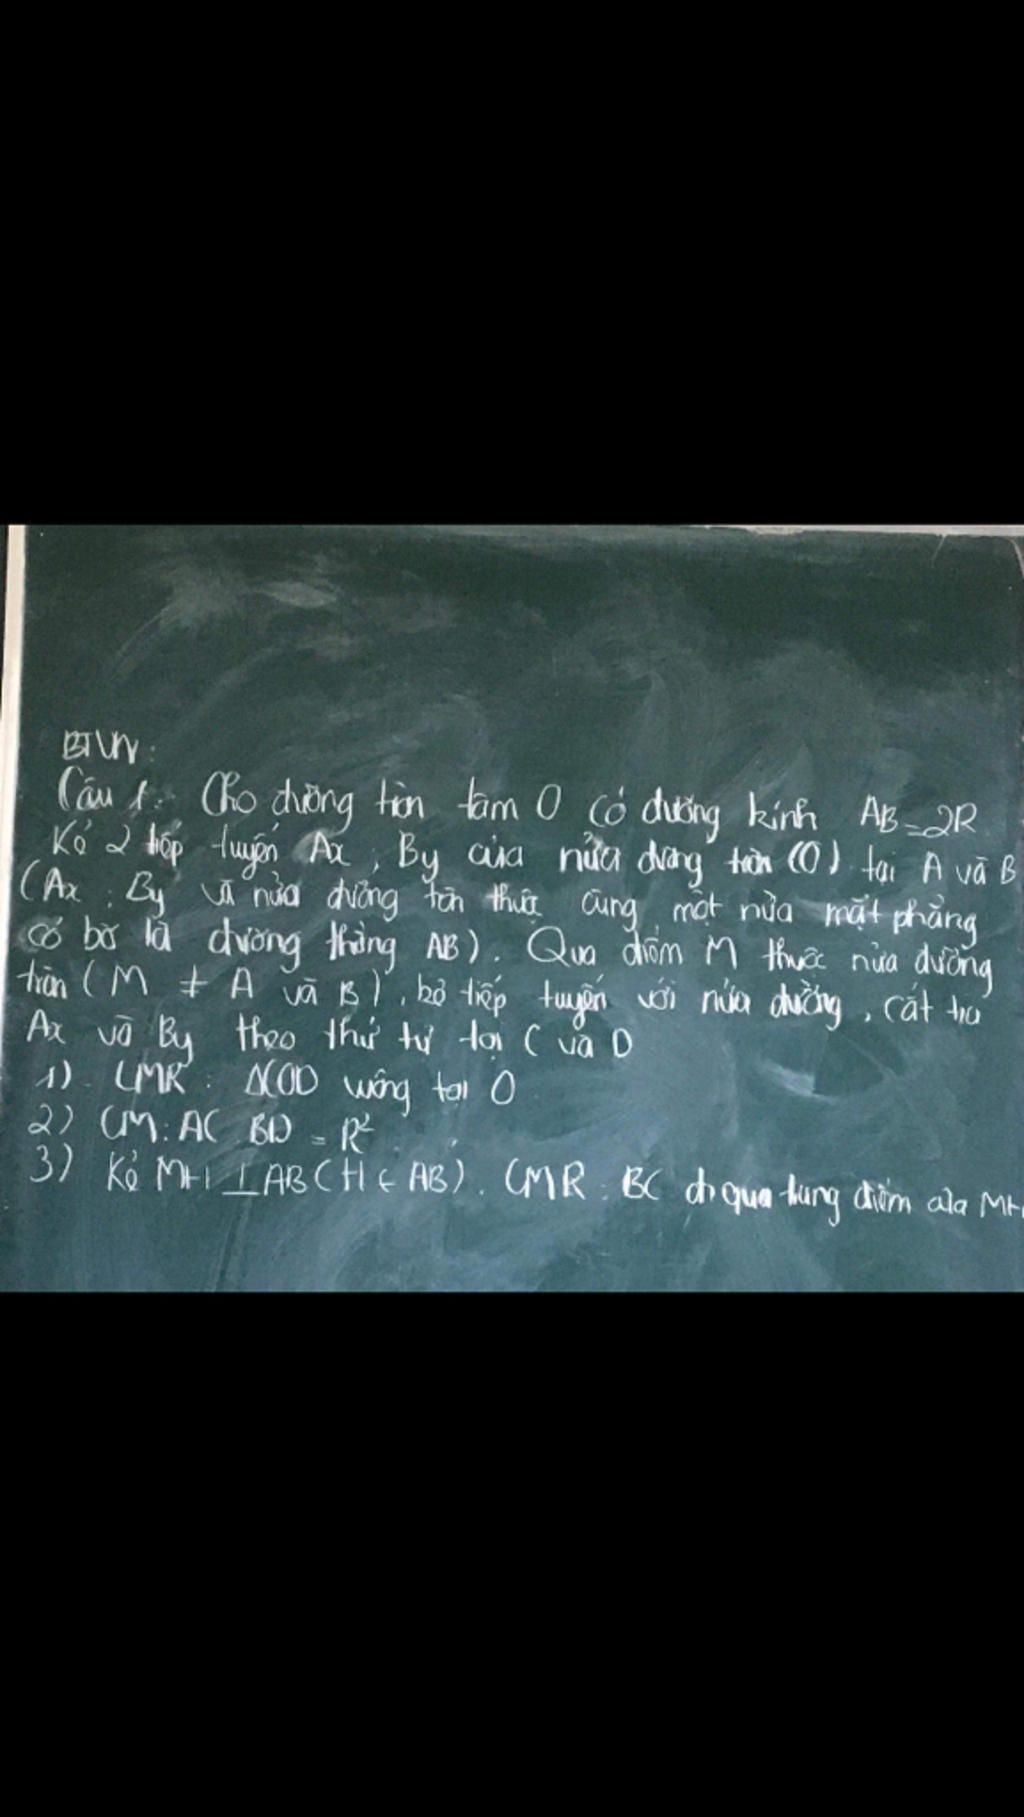 BTVN:
Câu 1: Cho đường tròn tâm O có đường kính AB=2R
Kẻ 2 tiếp tuyến Ax, By của nửa đường tròn (O) tại A và B
(Ax, By và nửa đường tròn thuộc cùng một nửa mặt phẳng
có bờ là đường thẳng AB). Qua điểm M thuộc nửa đường
tròn (M ≠ A và B), kẻ tiếp tuyến với nửa đường, cắt tia
Ax và By theo thứ tự tại C và D
1) CMR: ΔCOD vuông tại O
2) CM: AC BD = R²
3) Kẻ MH ⊥ AB (H ∈ AB). CMR: BC đi qua trung điểm của MH